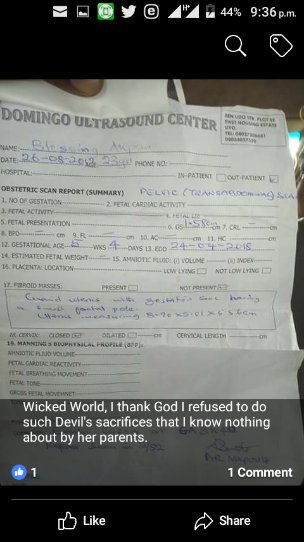 44% 9:36 p.m.
DOMINGO ULTRASOUND CENTER
EWET HOUSING ESTATE
UYO.
NAME: Blessing
DATE: 26-08-2017 23yrs PHONE NO:
HOSPITAL: IN-PATIENT OUT-PATIENT
OBSTETRIC SCAN REPORT (SUMMARY) PELVIC (TRANSABDOMINAL) SCAN
1. NO OF GESTATION 2. FETAL CARDIAC ACTIVITY
3. FETAL ACTIVITY 4. FETAL LIE
5. FETAL PRESENTATION 6. GS 1.58cm 7. CRL cm
8. BPD cm 9. FL cm 10. AC cm 11. HC cm
12. GESTATIONAL AGE 5 WKS 4 DAYS 13. EDD 24-04-2018
14. ESTIMATED FETAL WEIGHT 15. AMNIOTIC FLUID: (i) VOLUME (ii) INDEX
16. PLACENTA: LOCATION LOW LYING NOT LOW LYING
17. FIBROID MASSES: PRESENT NOT PRESENT
Gravid uterus with gestation sac having
a small foetal pole
Uterus measuring
18. CERVIX: CLOSED DILATED cm CERVICAL LENGTH cm
19. MANNING'S BIOPHYSICAL PROFILE (BPP):
AMNIOTIC FLUID VOLUME
FETAL CARDIAC REACTIVITY
FETAL BREATHING MOVEMENT
FETAL TONE
GROSS FETAL MOVEMENT
Wicked World, I thank God I refused to do
such Devil's sacrifices that I know nothing
about by her parents.
1 1 Comment
Like Share